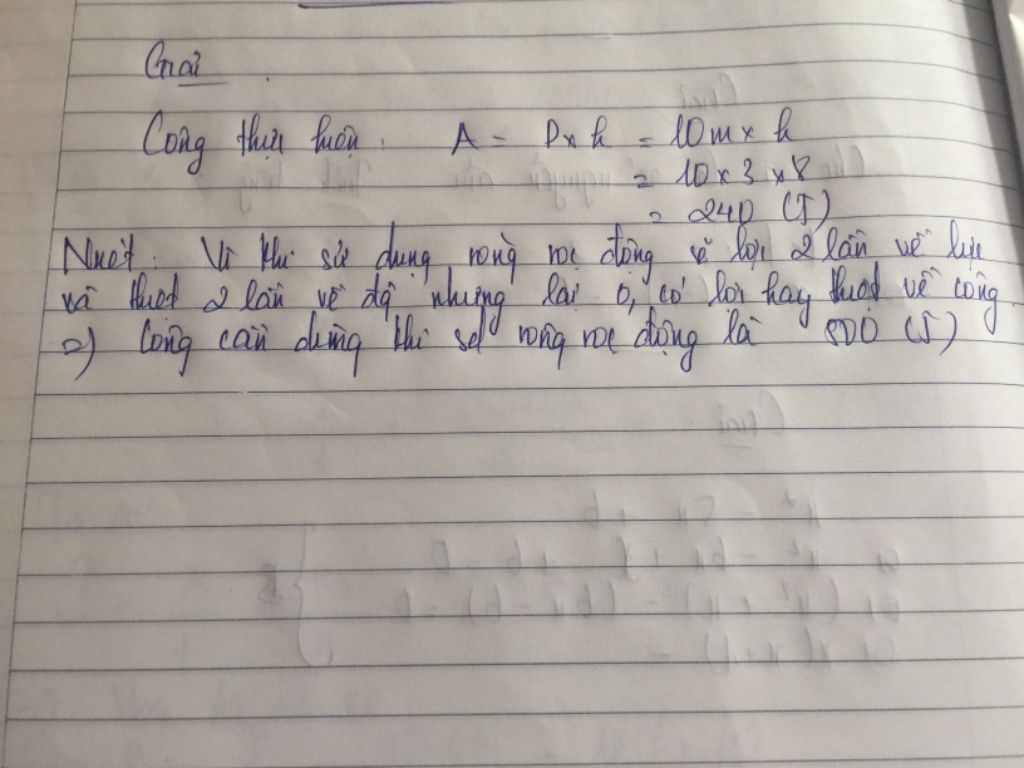 Giải
Công thực hiện: A = P x h = 10m x h
= 10 x 3 x 8
= 240 (J)
Nxét: Vì khi sử dụng ròng rọc động sẽ lợi 2 lần về lực
và thiệt 2 lần về đg nhưng lại 0, có lời hay thiệt về công.
=) Công cần dùng khi sd ròng rọc động là 500 (J)